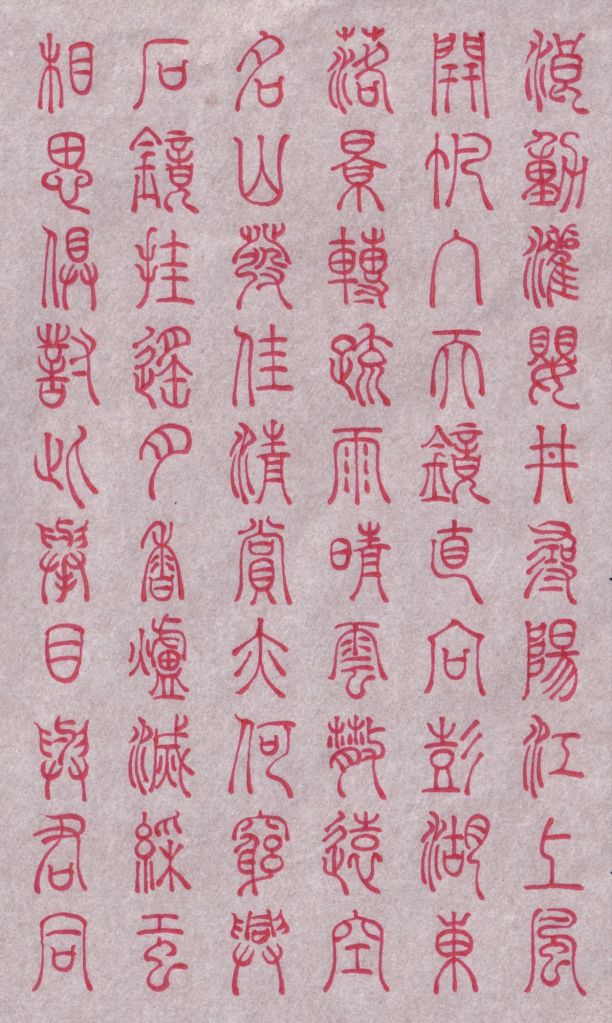 浪動灌嬰井尋陽江上風
開帆入天鏡直向彭湖東
落景轉疏雨晴雲散遠空
名山發佳清賞亦何窮興
石鏡挂遙月香爐滅綵虹
相思俱對此舉目與君同